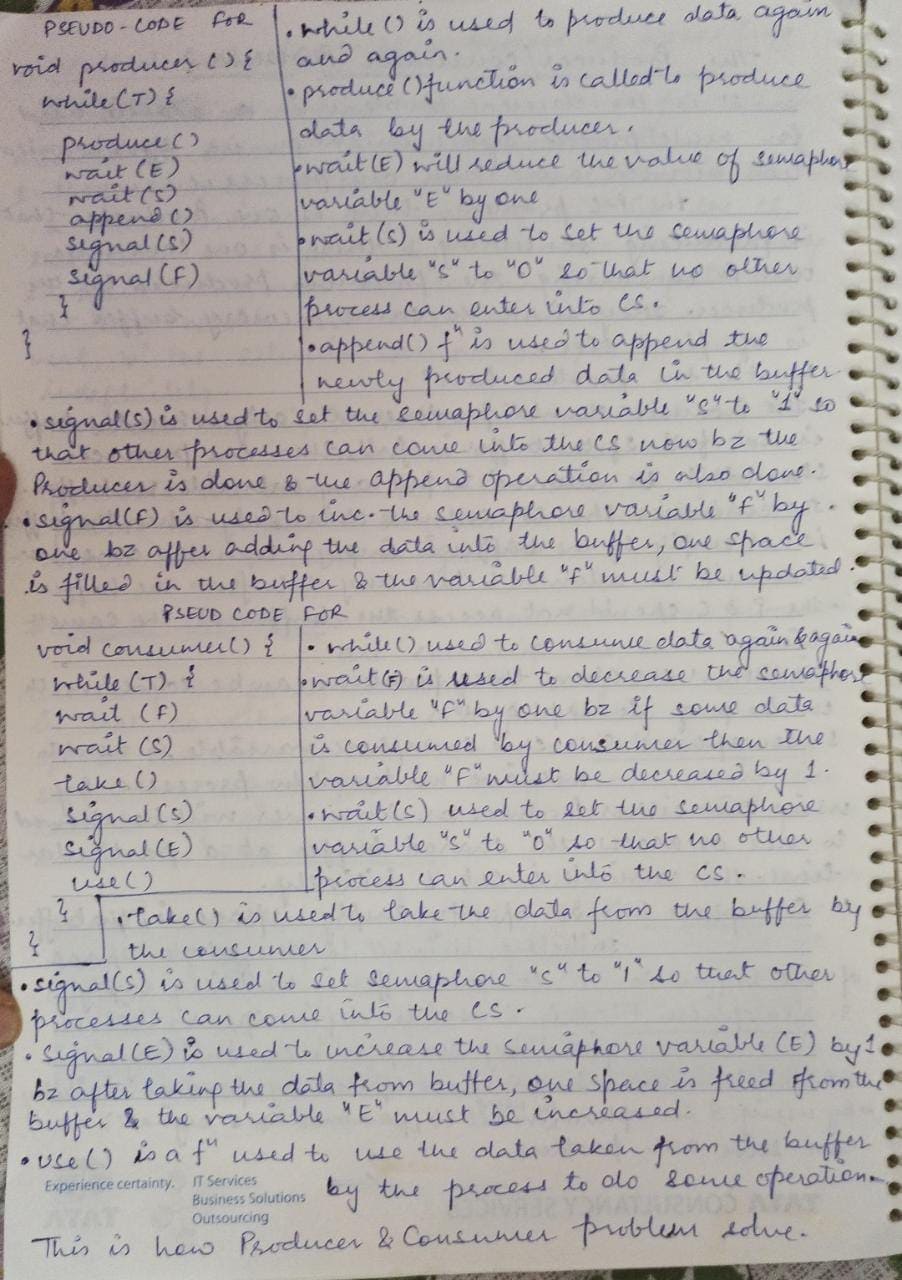 PSEUDO-CODE FOR
void producer () {
while(T) {
produce()
wait (E)
wait(S)
append()
signal(S)
signal(F)
}
}
• while () is used to produce data again
and again.
• produce()function is called to produce
data by the producer.
• wait(E) will reduce the value of semaphore
variable "E" by one
• wait(S) is used to set the semaphore
variable "S" to "0" so that no other
process can enter into CS.
• append() fⁿ is used to append the
newly produced data in the buffer
• signal(S) is used to set the semaphore variable "S" to "1" so
that other processes can come into the CS now bz the
Producer is done & the append operation is also done.
• signal(F) is used to inc. the semaphore variable "f" by
one bz affer adding the data into the buffer, one space
is filled in the buffer & the variable "f" must be updated.
PSEUD CODE FOR
void consumer() {
while (T) {
wait (F)
wait (S)
take()
signal(S)
signal(E)
use()
}
}
• while() used to consume data again & again
• wait(F) is used to decrease the semaphore
variable "F" by one bz if some data
is consumed by consumer then the
variable "F" must be decreased by 1.
• wait(S) used to set the semaphore
variable "S" to "0" so that no other
process can enter into the CS.
• take() is used to take the data from the buffer by
the consumer
• signal(S) is used to set semaphore "S" to "1" so that other
processes can come into the CS.
• Signal(E) is used to increase the semaphore variable (E) by 1
bz after taking the data from buffer, one space is freed from the
buffer & the variable "E" must be increased.
• use() is a fⁿ used to use the data taken from the buffer
by the process to do some operation.
Experience certainty. IT Services
Business Solutions
Outsourcing
This is how Producer & Consumer problem solve.